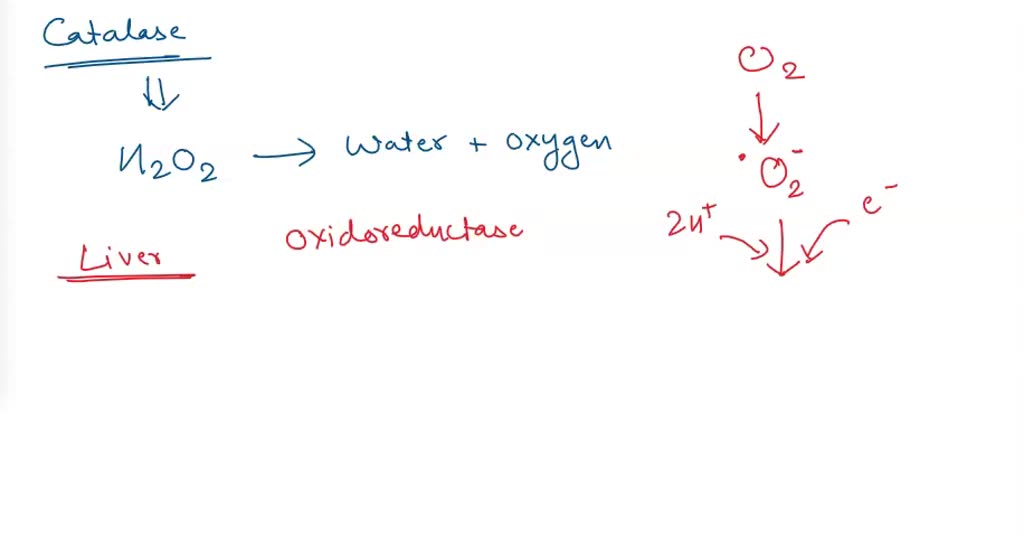 Catalase
H₂O₂ → Water + Oxygen
Liver
Oxidoreductase
O₂
•O₂⁻
2H⁺
e⁻